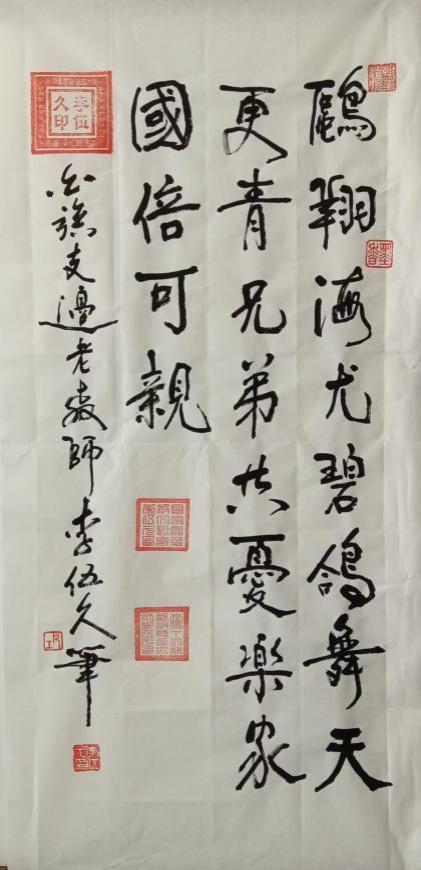 鷗翔海尤碧鴿舞天
更青兄弟共憂樂家
國倍可親
白族支邊老教師李伍久筆
李伍
久印